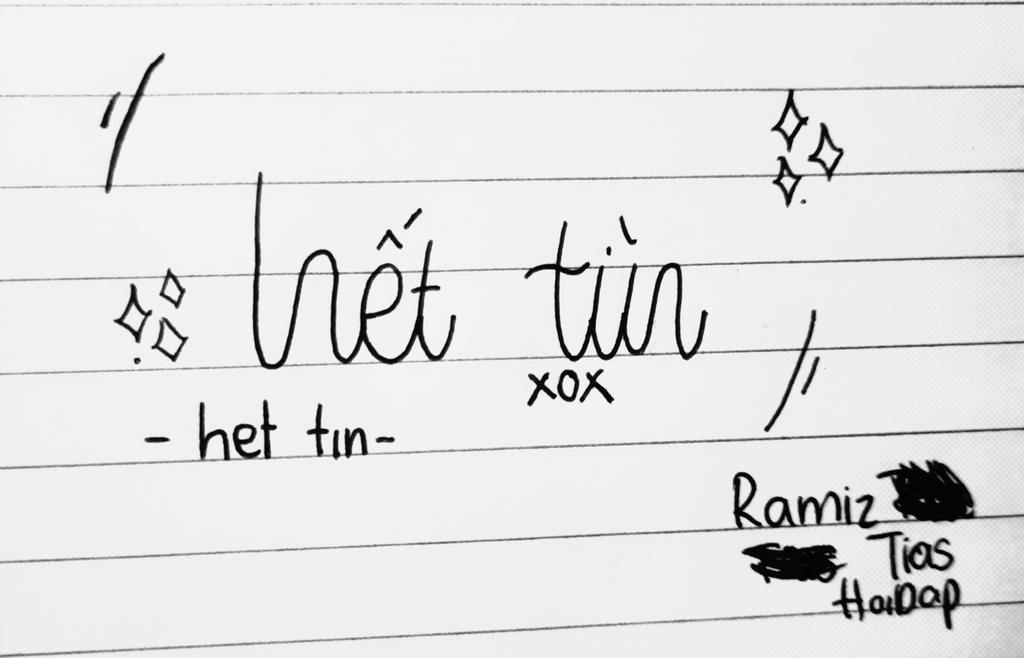 hết tiìn
xox
- het tın -
Ramiz
Tias
HaiDap